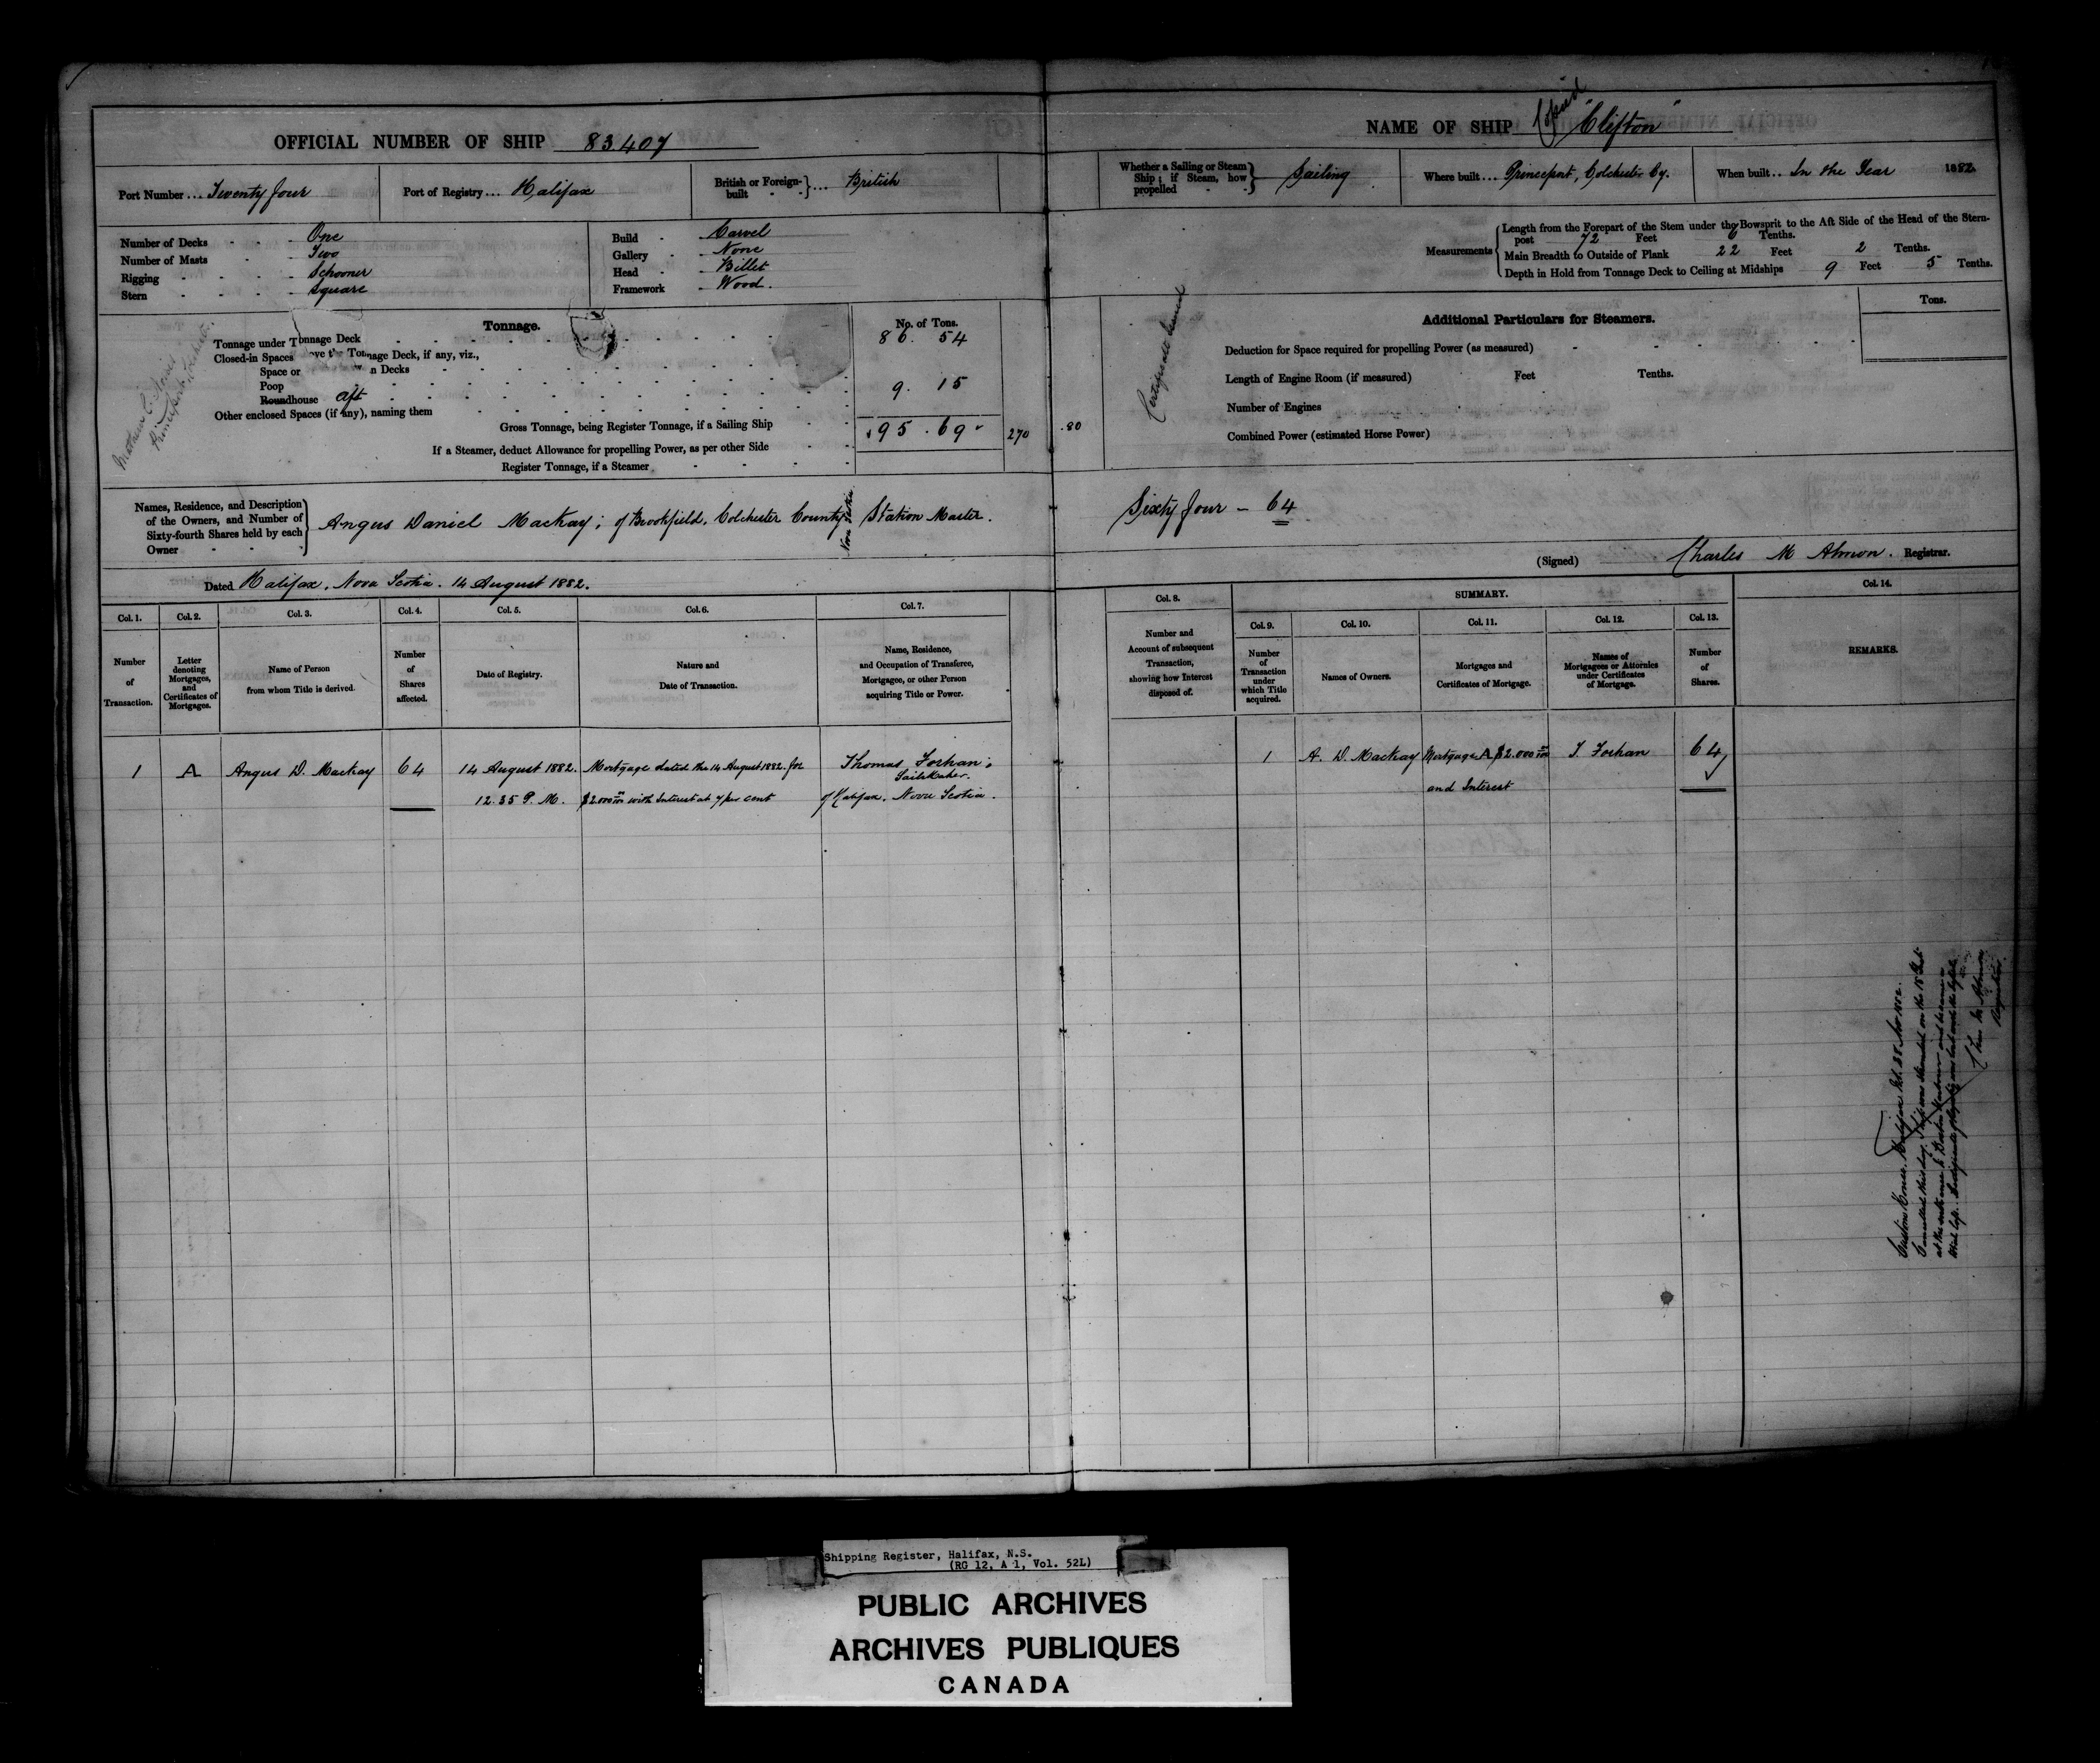 OFFICIAL NUMBER OF SHIP 83407
Port Number ... Twenty four
Port of Registry ... Halifax
British or Foreign-built } ... British
Number of Decks - - - One
Number of Masts - - - Two
Rigging - - - - Schooner
Stern - - - - Square
Build - Carvel
Gallery - None
Head - Billet
Framework - Wood.
Tonnage.
No. of Tons.
Tonnage under Tonnage Deck 86. 54
Closed-in Spaces ove the Tonnage Deck, if any, viz.,
Space or n Decks
Poop
Roundhouse aft 9. 15
Other enclosed Spaces (if any), naming them
Gross Tonnage, being Register Tonnage, if a Sailing Ship 95. 69 270 .80
If a Steamer, deduct Allowance for propelling Power, as per other Side
Register Tonnage, if a Steamer
Names, Residence, and Description of the Owners, and Number of Sixty-fourth Shares held by each Owner } Angus Daniel Mackay; of Brookfield, Colchester County Nova Scotia Station Master.
Dated Halifax, Nova Scotia. 14 August 1882.
Col. 1. Col. 2. Col. 3. Col. 4. Col. 5. Col. 6. Col. 7.
Number of Transaction.
Letter denoting Mortgages, and Certificates of Mortgages.
Name of Person from whom Title is derived.
Number of Shares affected.
Date of Registry.
Nature and Date of Transaction.
Name, Residence, and Occupation of Transferee, Mortgagee, or other Person acquiring Title or Power.
1 A Angus D. Mackay 64 14 August 1882. Mortgage dated the 14 August 1882 for Thomas Forhan;
Sailmaker.
12.35 P. M. $2.000 with Interest at 7 per cent of Halifax. Nova Scotia.
NAME OF SHIP "Clifton"
Whether a Sailing or Steam Ship; if Steam, how propelled } Sailing
Where built ... Princeport, Colchester Cy.
When built .. In the Year 1882.
Measurements { Length from the Forepart of the Stem under the Bowsprit to the Aft Side of the Head of the Stern-
post 72 Feet 6 Tenths.
Main Breadth to Outside of Plank 22 Feet 2 Tenths.
Depth in Hold from Tonnage Deck to Ceiling at Midships 9 Feet 5 Tenths.
Additional Particulars for Steamers.
Tons.
Deduction for Space required for propelling Power (as measured)
Length of Engine Room (if measured) Feet Tenths.
Number of Engines
Combined Power (estimated Horse Power)
Sixty four - 64
(Signed) Charles M Almon. Registrar.
Col. 8. SUMMARY. Col. 14.
Col. 9. Col. 10. Col. 11. Col. 12. Col. 13.
Number and Account of subsequent Transaction, showing how Interest disposed of.
Number of Transaction under which Title acquired.
Names of Owners.
Mortgages and Certificates of Mortgage.
Names of Mortgagees or Attornies under Certificates of Mortgage.
Number of Shares.
REMARKS.
1 A. D. Mackay Mortgage A $2.000 T. Forhan 64
and Interest
Custom House, Halifax
Registrar.
Shipping Register, Halifax, N.S.
(RG 12, A 1, Vol. 52L)
PUBLIC ARCHIVES
ARCHIVES PUBLIQUES
CANADA